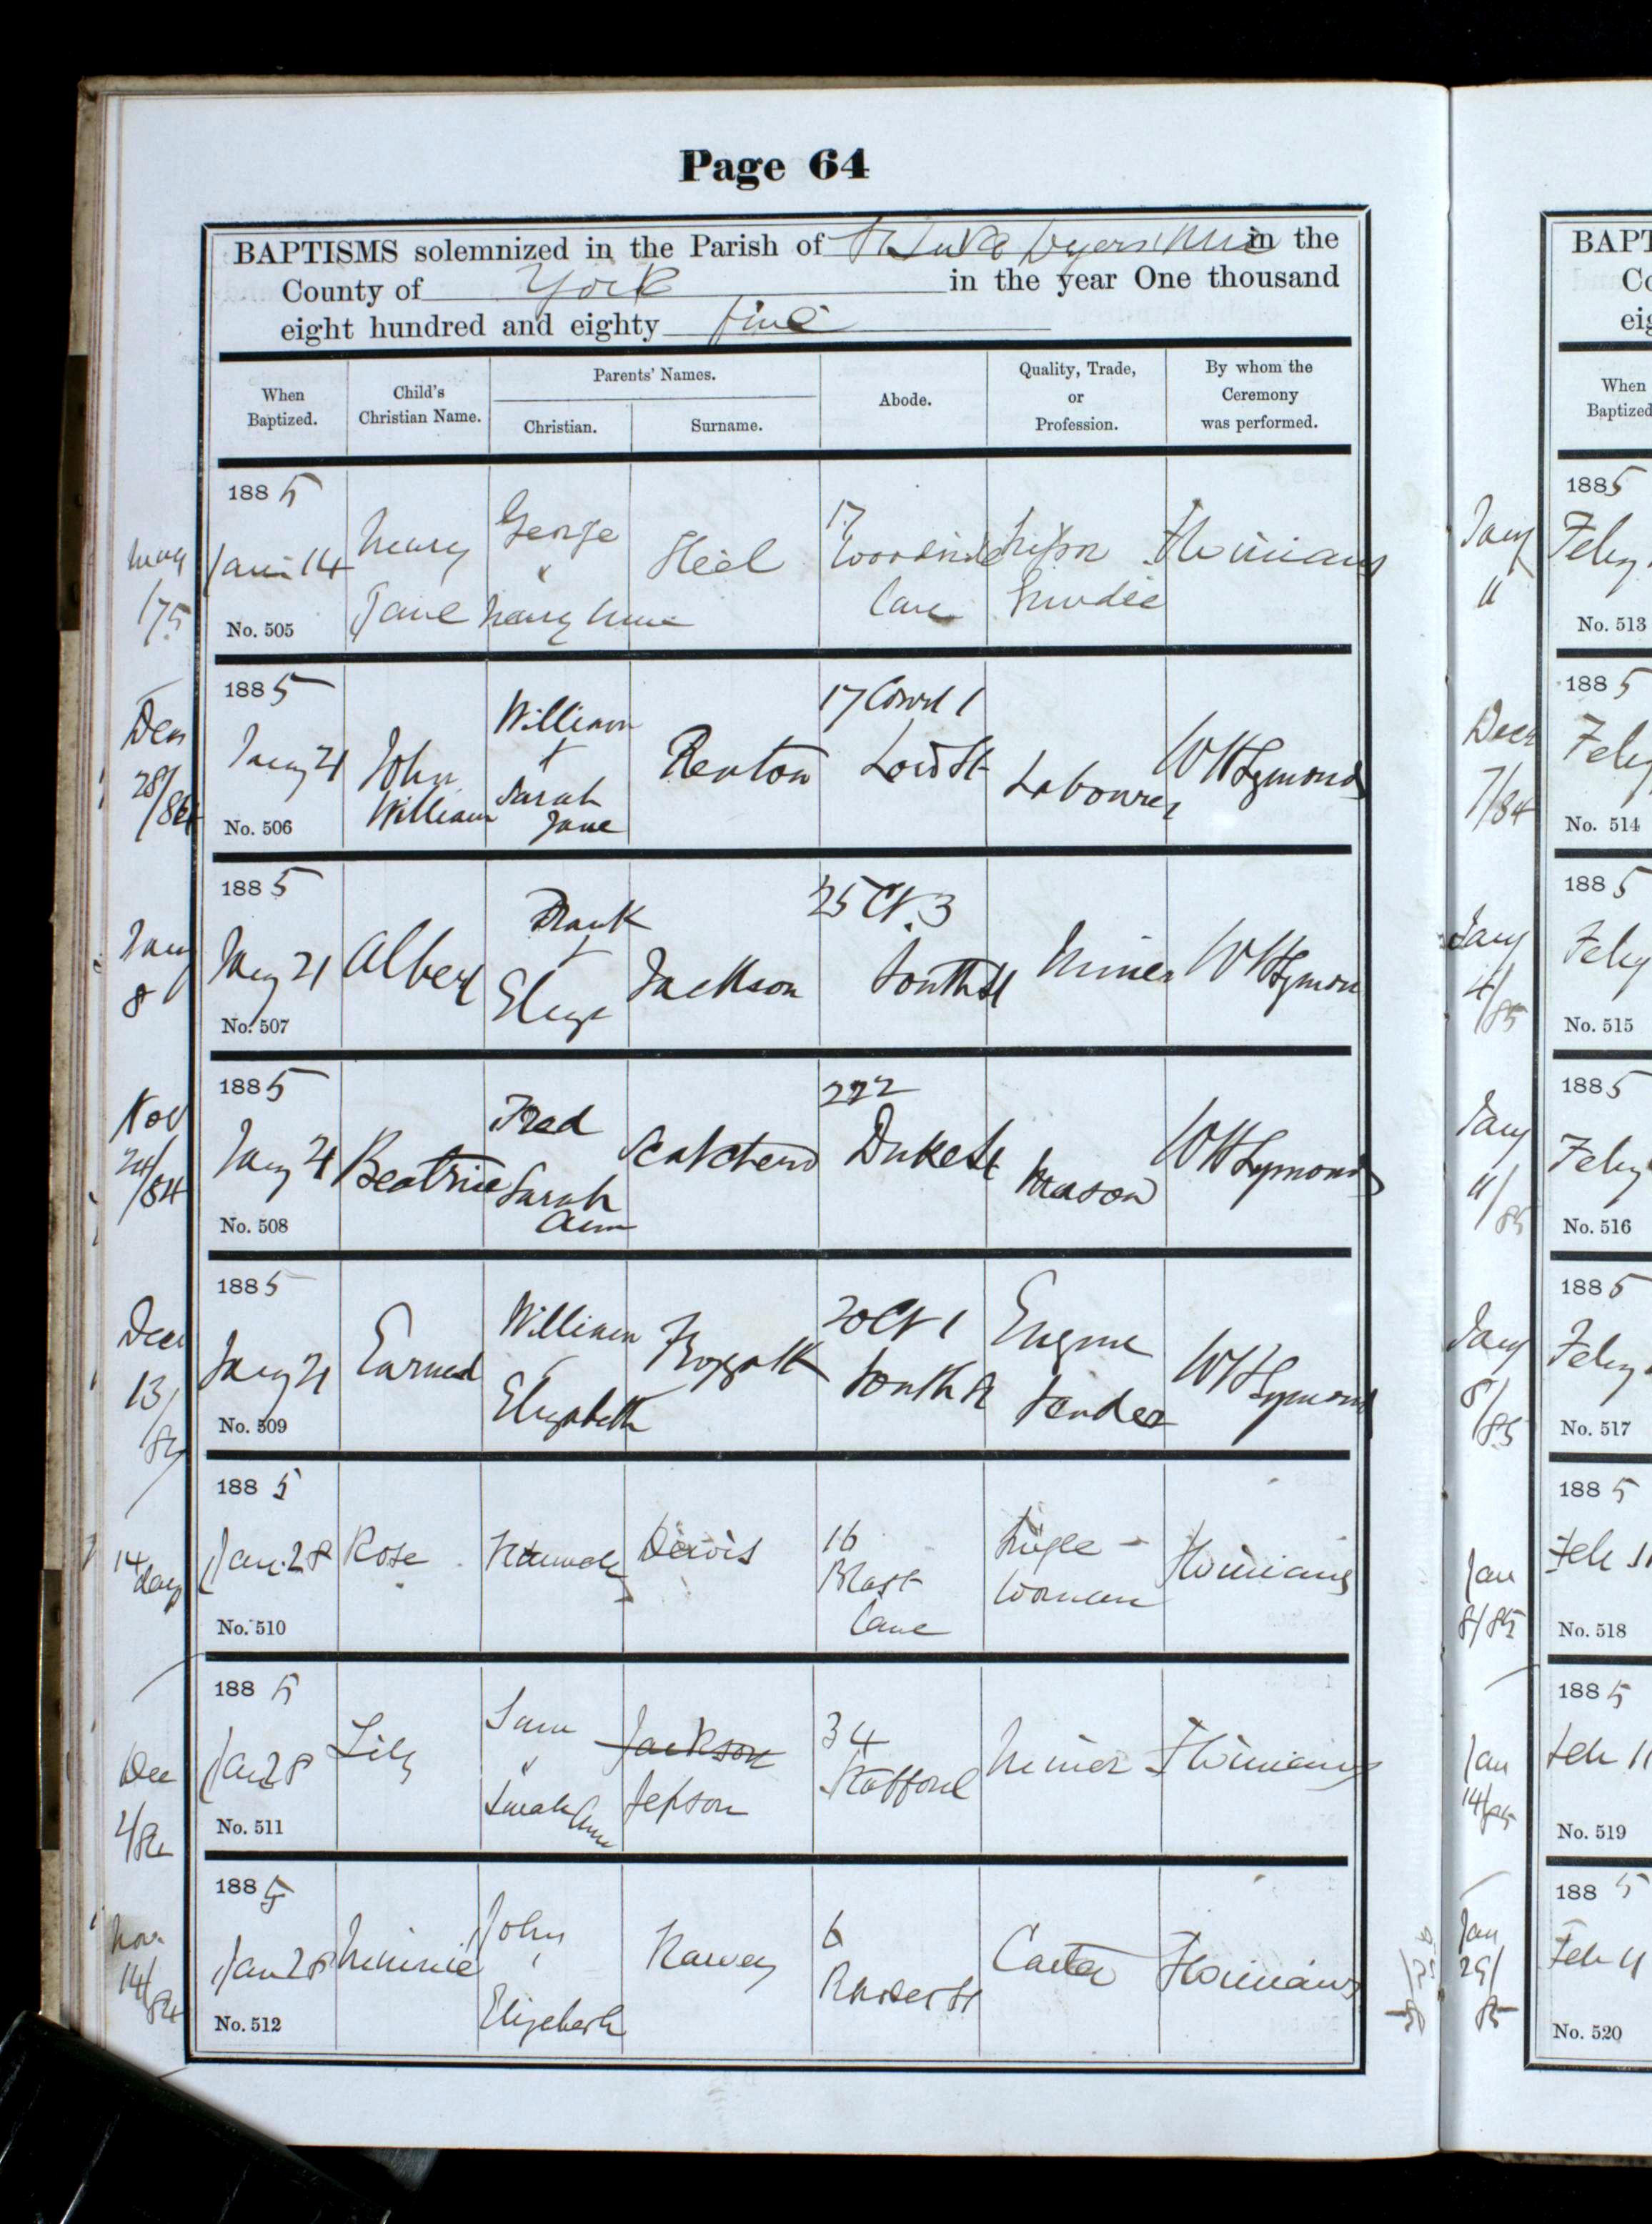 Page 64
BAPTISMS solemnized in the Parish of St Luke Dyers Hill in the
County of York in the year One thousand
eight hundred and eighty five
When Baptized.
Child's Christian Name.
Parents' Names.
Christian.
Surname.
Abode.
Quality, Trade, or Profession.
By whom the Ceremony was performed.
1885
George
17
Jan 14
Jane
Lane
No. 505
1885
William
17 Court 1
Dec
28/84
Jany 21
John
+
Renton
Lord St
Labourer
WHSymonds
William
Sarah
Jane
No. 506
1885
Frank
25 Ct. 3
Jany
8
Jany 21
Albert
+
Jackson
South St
Miner
WHSymons
Eliza
No. 507
1885
Fred
222
Nov
24/84
Jany 21
Beatrice
Duke St
Mason
WHSymonds
Sarah
Ann
No. 508
1885
William
20 Ct 1
Engine
Dec
13/84
Jany 21
Earnest
Froggatt
South St
Tender
WHSymonds
Elizabeth
No. 509
1885
14 days
Jan. 28
Rose
Davis
16
Single
Blast
Woman
Lane
No. 510
1885
Sam
Jackson
34
Dec
2/84
Jan 28
Lily
&
Stafford
Miner
Sarah Ann
Jepson
No. 511
1885
John
6
Nov.
14/84
Jan 28
Minnie
Carter
Elizabeth
No. 512
BAPT
Co
eig
When
Baptized
1885
Jany
11
Feby
No. 513
1885
Decr
7/84
Feby
No. 514
1885
Jany
4/85
Feby
No. 515
1885
Jany
11/85
Feby
No. 516
1885
Jany
8/85
Feby
No. 517
1885
Jan
8/85
Feb 11
No. 518
1885
Jan
14/85
Feb 11
No. 519
1885
Jan
29/85
Feb 11
No. 520